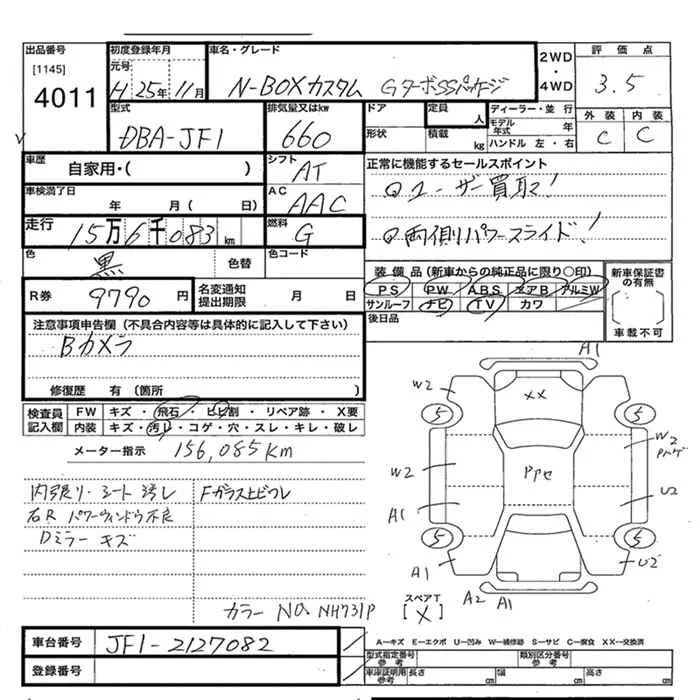 出品番号
[1145]
4011
初度登録年月
元号
H 25年 11月
車名・グレード
N-BOXカスタム GターボSSパッケージ
2WD
・
4WD
評価点
3.5
型式
DBA-JF1
排気量又はkw
660
ドア
形状
定員
人
積載
kg
ディーラー・並行
モデル年式
年
ハンドル 左・右
外装
内装
C
C
車歴
自家用・( )
シフト
AT
正常に機能するセールスポイント
車検満了日
年 月 ( 日)
AC
AAC
①ユーザー買取!
走行
15万6千083km
燃料
G
②両側パワースライド!
色
黒
色替
色コード
装備品(新車からの純正品に限り○印)
PS PW ABS エアB アルミW
サンルーフ ナビ TV カワ
新車保証書の有無
車載不可
R券
9790円
名変通知
提出期限
月 日
後日品
注意事項申告欄(不具合内容等は具体的に記入して下さい)
Bカメラ
修復歴 有(箇所
検査員
記入欄
FW
キズ・飛石・ヒビ割・リペア跡・X要
内装
キズ・汚レ・コゲ・穴・スレ・キレ・破レ
メーター指示
156,085Km
内張り・シート汚レ
Fガラスヒビワレ
右R パワーウィンドウ不良
Dミラー キズ
カラー NO. NH731P
A1
W2
XX
5
5
W2
W2
PPセ
U2
A1
5
5
A1
U2
A2
A1
スペアT
[X]
車台番号
JF1-2127082
登録番号
A-キズ E-エクボ U-凹み W-補修跡 S-サビ C-腐食 XX-交換済
型式指定番号
参考
類別区分番号
参考
車庫証明用
参考
長さ
cm
幅
cm
高さ
cm